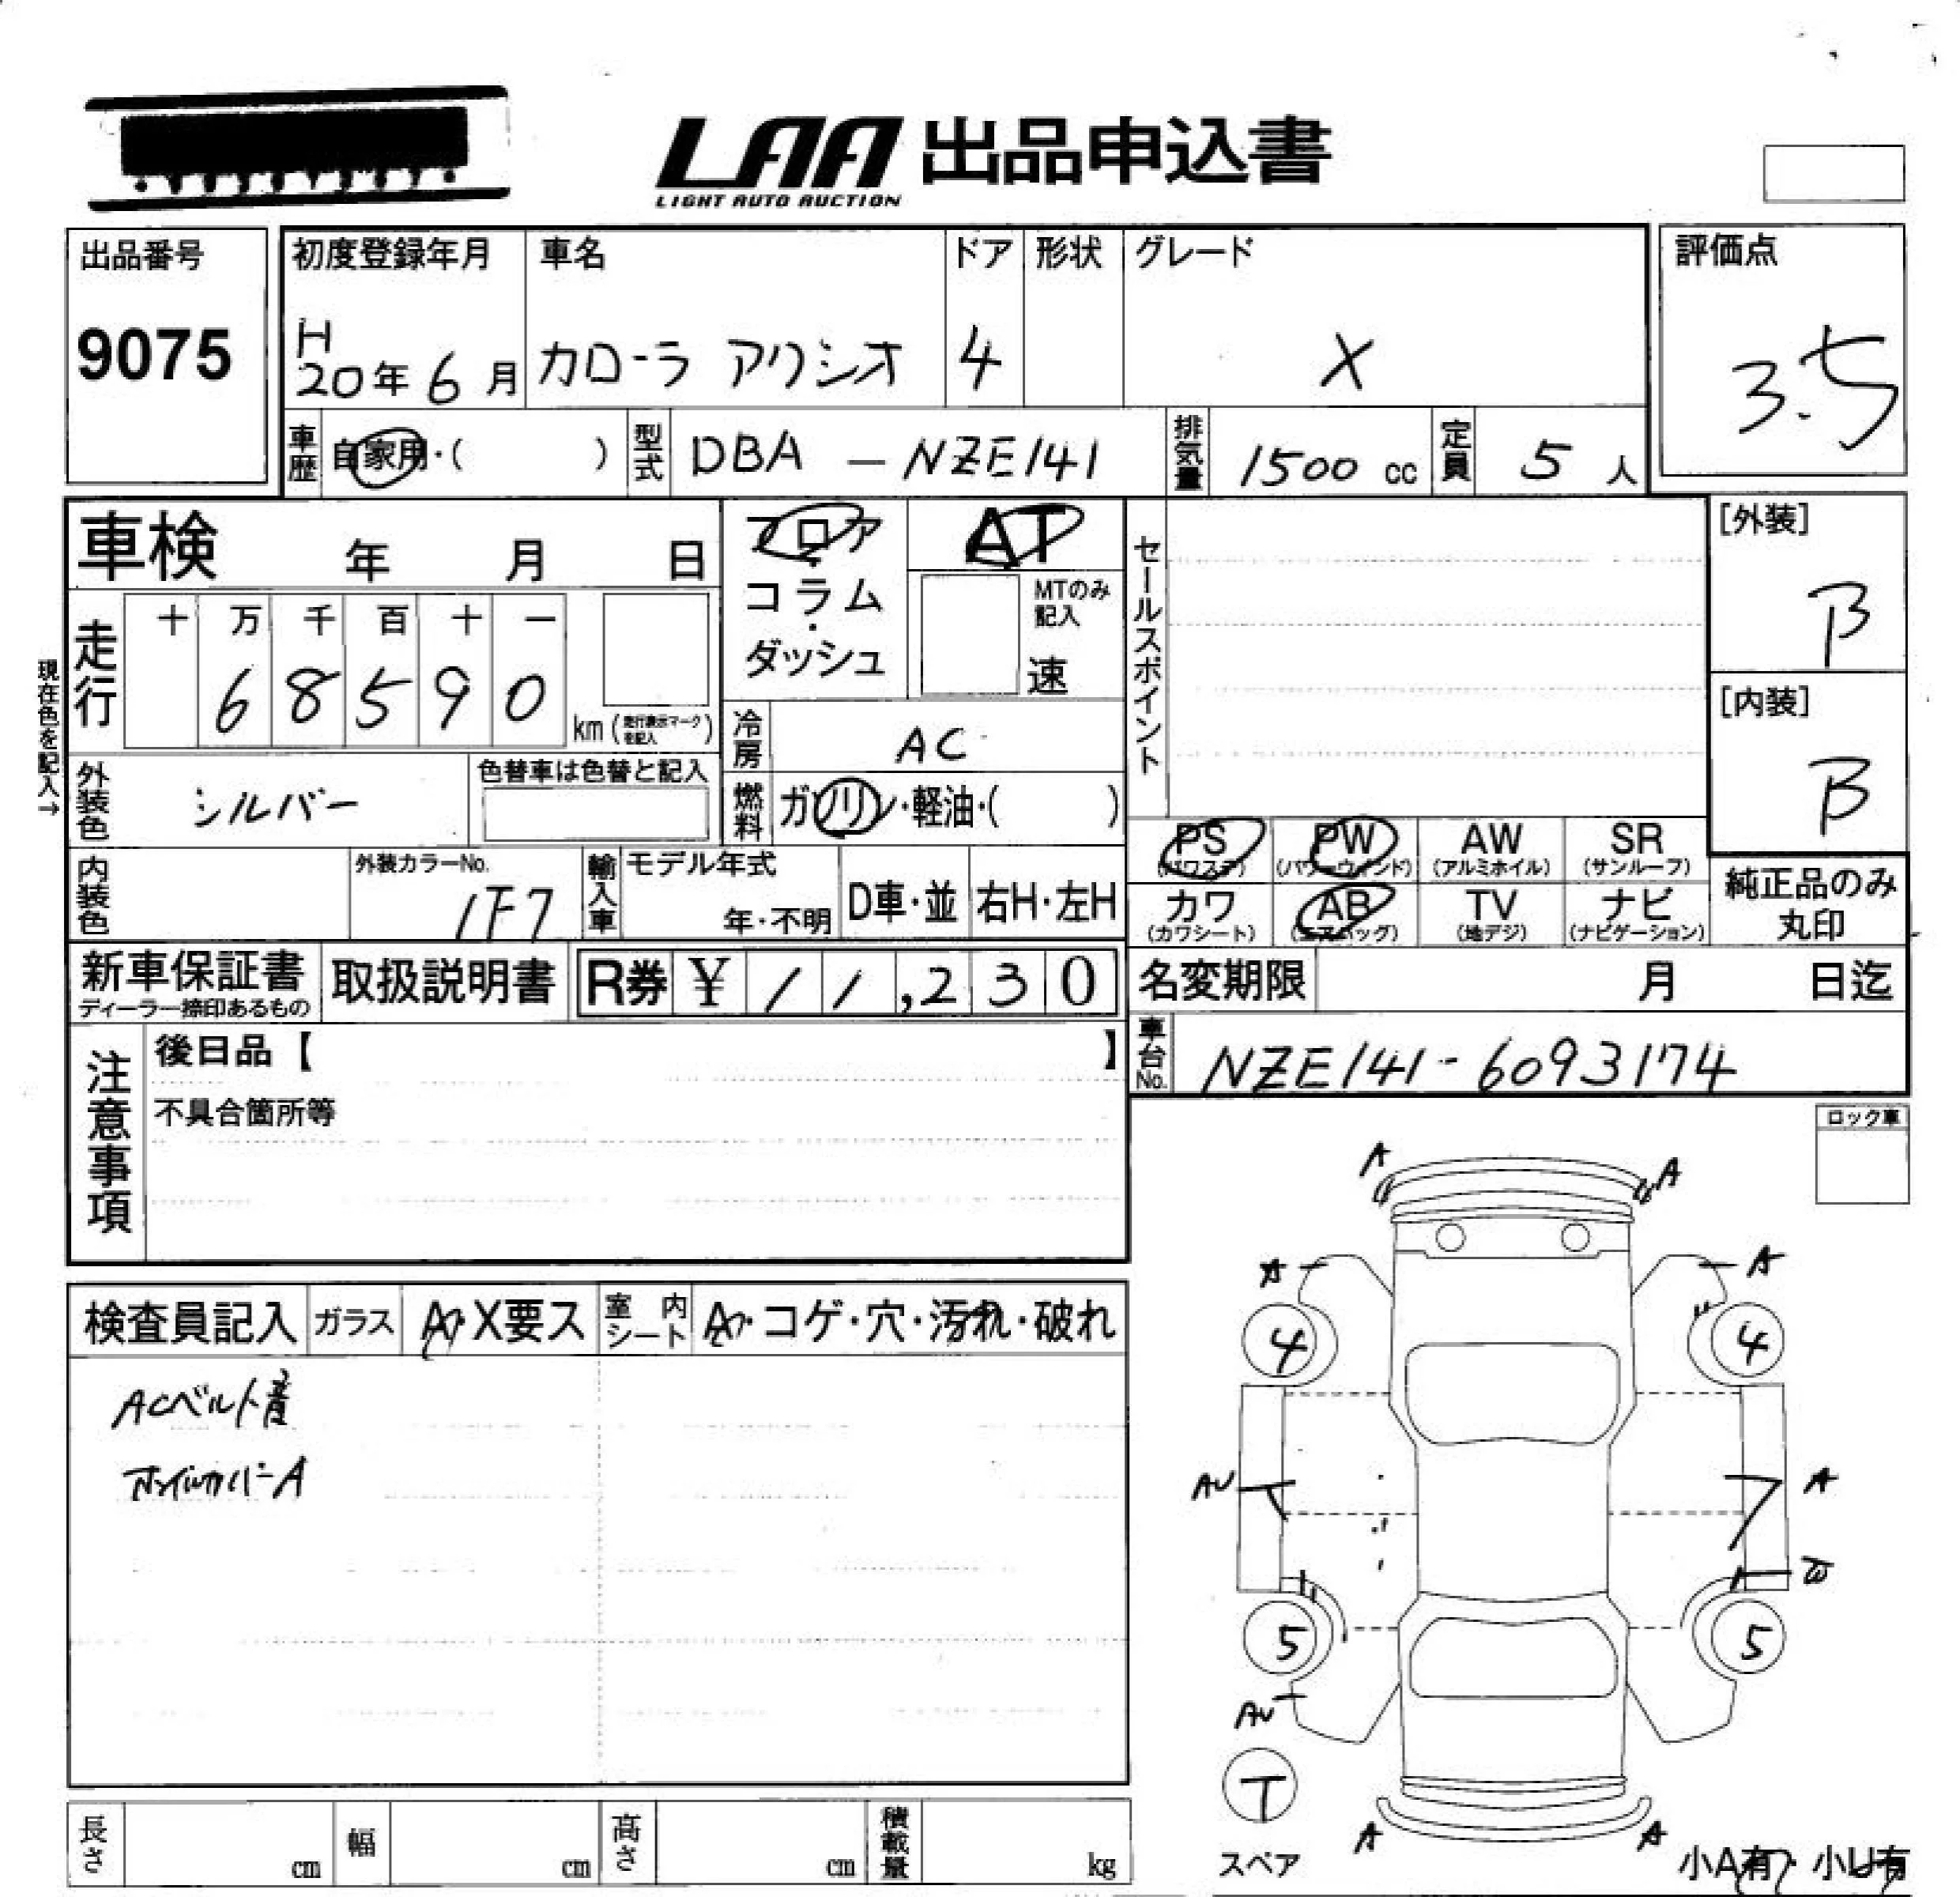 LAA 出品申込書
LIGHT AUTO AUCTION
出品番号
9075
初度登録年月
H
20年 6月
車名
カローラ アクシオ
ドア
4
形状
グレード
X
評価点
3.5
車歴 自家用・( )
型式 DBA — NZE141
排気量 1500 cc
定員 5 人
車検 年 月 日
フロア
・
コラム
・
ダッシュ
AT
MTのみ
記入
速
セールスポイント
[外装]
B
[内装]
B
現在色を記入→
走行
十 万 千 百 十 一
6 8 5 9 0
km (走行表示マークを記入)
冷房 AC
燃料 ガソリン・軽油・( )
外装色 シルバー
色替車は色替と記入
内装色
外装カラーNo.
1F7
輸入車
モデル年式
年・不明
D車・並
右H・左H
PS
(パワステ)
PW
(パワーウインド)
AW
(アルミホイル)
SR
(サンルーフ)
カワ
(カワシート)
AB
(エアバッグ)
TV
(地デジ)
ナビ
(ナビゲーション)
純正品のみ
丸印
新車保証書
ディーラー捺印あるもの
取扱説明書
R券 ¥ 11,230
名変期限 月 日迄
車台No. NZE141-6093174
注意事項
後日品【 】
不具合箇所等
ロック車
検査員記入
ガラス
A・X要ス
室内
シート
・コゲ・穴・汚れ・破れ
ACベルト音
ホイルカバーA
A
A
A
A
4
4
AU
A
5
5
AU
T
スペア
A
A
小A有・小U有
長さ cm
幅 cm
高さ cm
積載量 kg